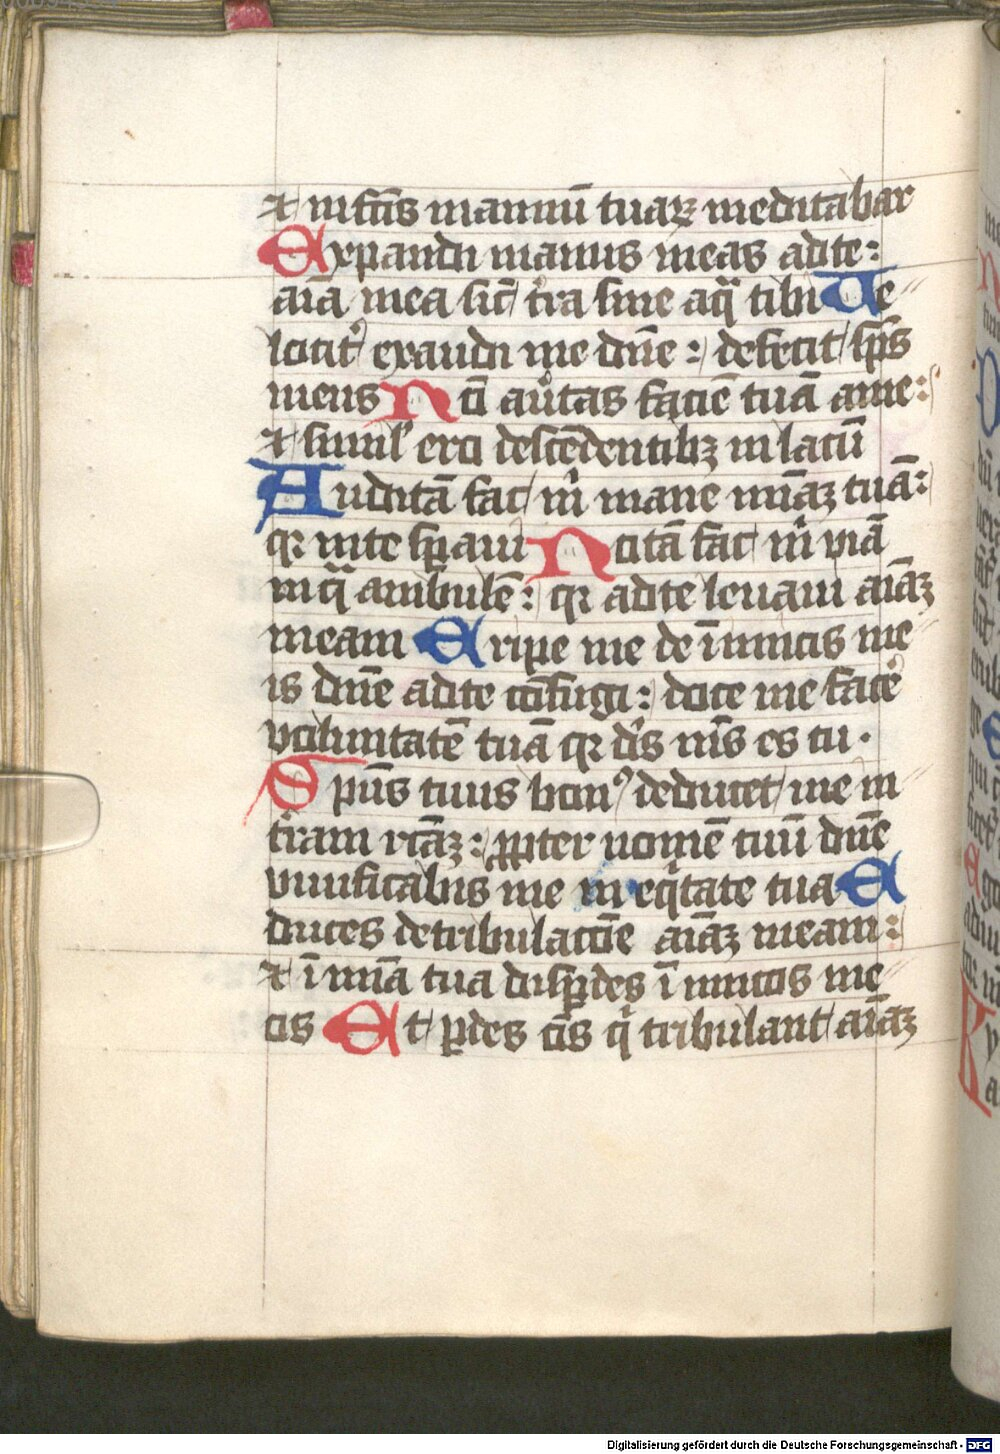 ⁊ in fc̄is manuū tuaꝝ meditabar
Expandi manus meas ad te :
aīa mea sic̄ t̓ra sine aq̄ tibi Ve
locit̓ exaudi me dn̄e : defecit sp̄s
meus No̅ au̓tas faciē tuā a me :
⁊ simil̓ ero descēdentibꝫ in lacū
Auditā fac m̓ mane mīaꝫ tuā :
qꝛ in te sꝑaui Notā fac m̓ viā
in q̄ ambulē : qꝛ ad te leuaui aīaꝫ
meam Eripe me de īimicis me
is dn̄e ad te cōfugi : doce me face̓
voluntatē tuā qꝛ d̓s m̄s es tu ·
Spūs tuus bonꝰ deducet me in
t̓ram rc̄aꝫ : ꝓpter nomē tuū dn̄e
viuificabis me in eq̓tate tua E
duces de tribulacōe aīaꝫ meam :
⁊ ī mīa tua disꝑdes īimicos me
os Et ꝑdes oīs q̓ tribulant aīaꝫ
Digitalisierung gefördert durch die Deutsche Forschungsgemeinschaft - DFG